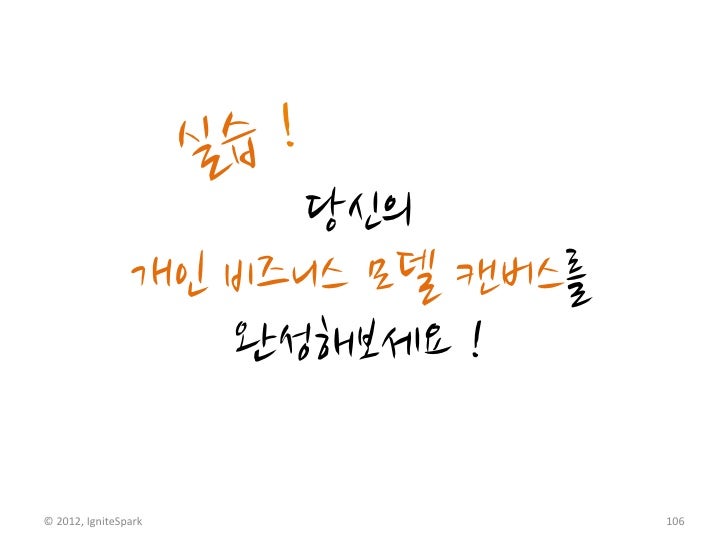 실습 !
당신의
개인 비즈니스 모델 캔버스를
완성해보세요 !
© 2012, IgniteSpark
106